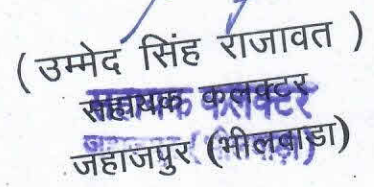 ( उम्मेद सिंह राजावत )
सहायक कलक्टर
जहाजपुर (भीलवाडा)